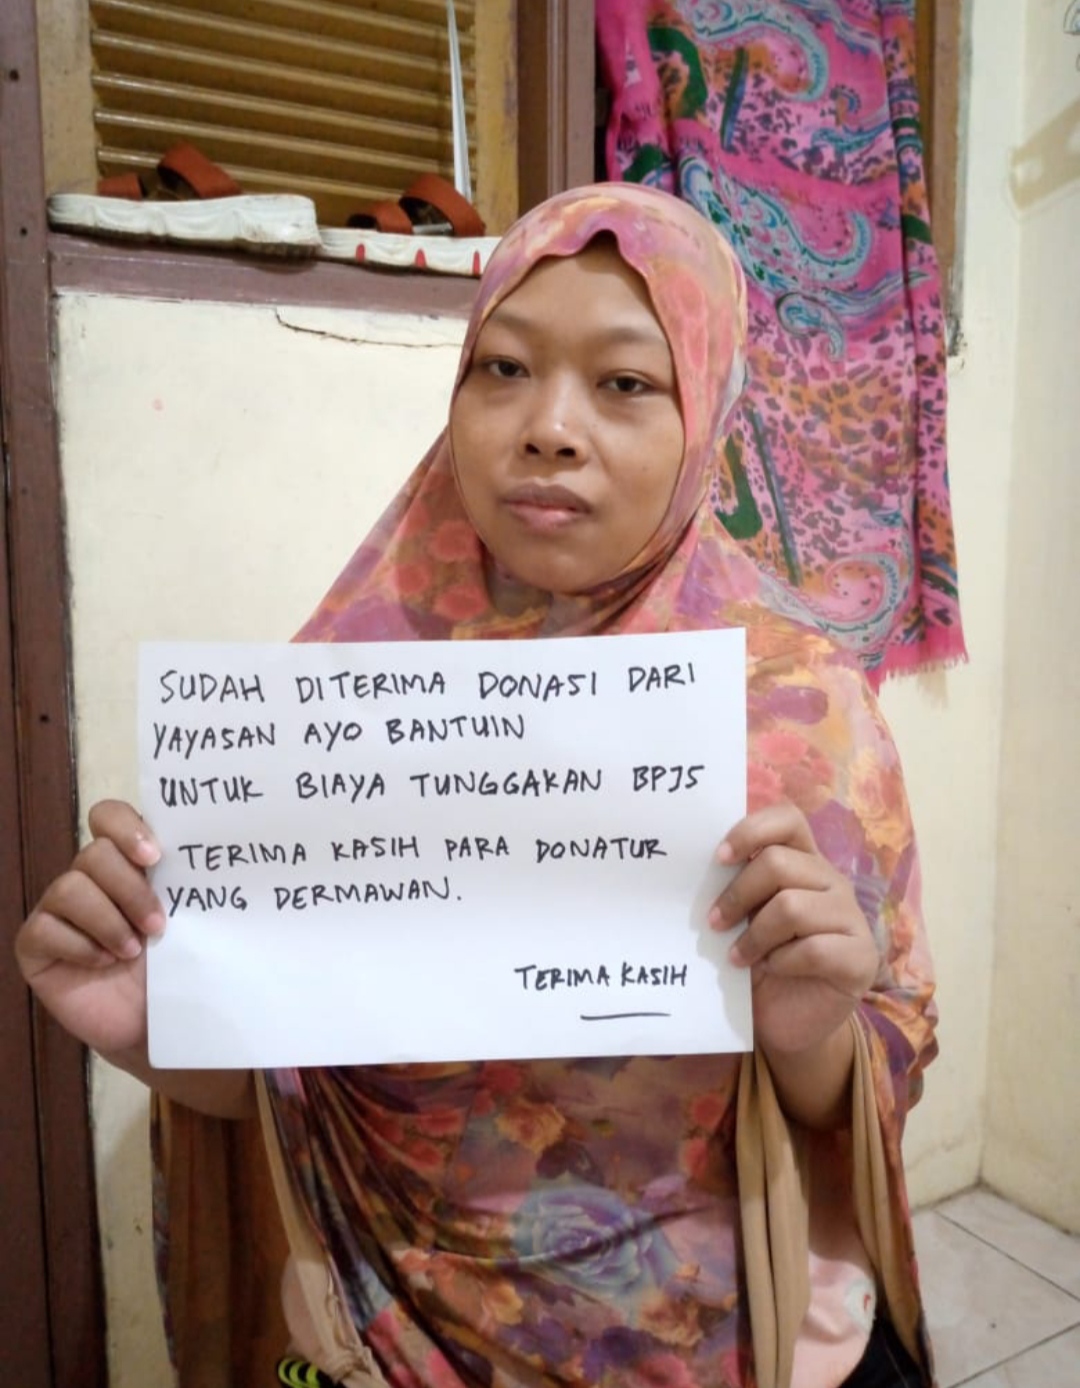 SUDAH DITERIMA DONASI DARI
YAYASAN AYO BANTUIN
UNTUK BIAYA TUNGGAKAN BPJS
TERIMA KASIH PARA DONATUR
YANG DERMAWAN.
TERIMA KASIH